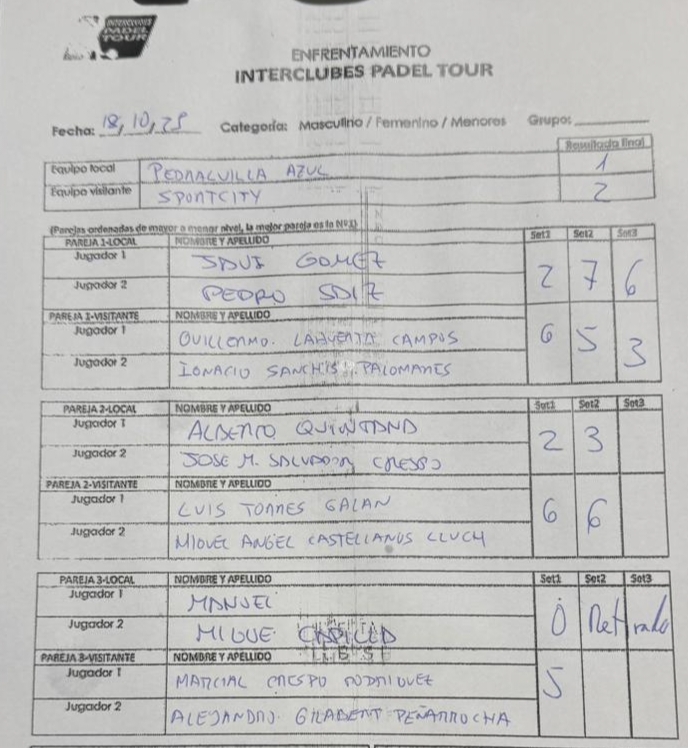 INTERCLUBES
PADEL
TOUR
ENFRENTAMIENTO
INTERCLUBES PADEL TOUR
Fecha: 18, 10, 25 Categoría: Masculino / Femenino / Menores Grupo:
Resultado final
Equipo local PEDRALVILLA AZUL 1
Equipo visitante SPORTCITY 2
(Parejas ordenadas de mayor a menor nivel, la mejor pareja es la Nº1)
PAREJA 1-LOCAL NOMBRE Y APELLIDO Set1 Set2 Set3
Jugador 1 JAVI GOMEZ 2 7 6
Jugador 2 PEDRO SAIZ
PAREJA 1-VISITANTE NOMBRE Y APELLIDO
Jugador 1 GUILLERMO. LAHUERTA CAMPOS 6 5 3
Jugador 2 IGNACIO SANCHIS PALOMARES
PAREJA 2-LOCAL NOMBRE Y APELLIDO Set1 Set2 Set3
Jugador 1 ALBERTO QUINTANA 2 3
Jugador 2 JOSE M. SALVADOR CRESPO
PAREJA 2-VISITANTE NOMBRE Y APELLIDO
Jugador 1 LUIS TORRES GALAN 6 6
Jugador 2 MIGUEL ANGEL CASTELLANOS LLUCH
PAREJA 3-LOCAL NOMBRE Y APELLIDO Set1 Set2 Set3
Jugador 1 MANUEL 0 Ret rado
Jugador 2 MIGUE
PAREJA 3-VISITANTE NOMBRE Y APELLIDO
Jugador 1 MARCIAL CRESPO RODRIGUEZ 5
Jugador 2 ALEJANDRO. GILABERT PEÑARROCHA